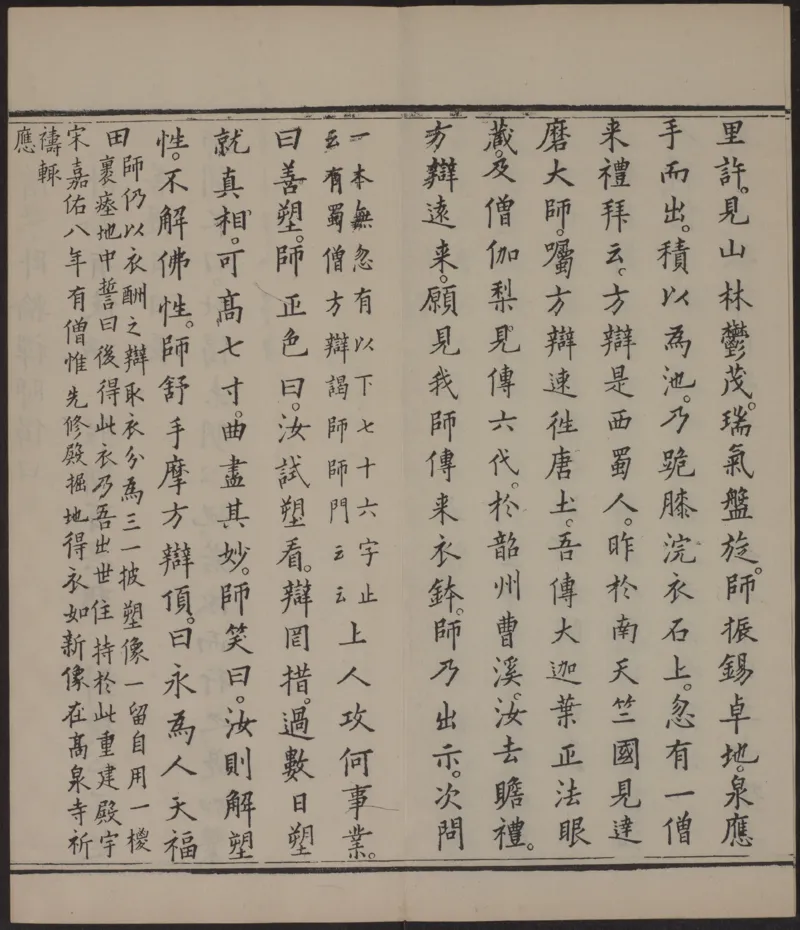 里許。見山林鬱茂。瑞氣盤旋。師振錫卓地。泉應
手而出。積以為池。乃跪膝浣衣石上。忽有一僧
来禮拜云。方辯是西蜀人。昨於南天竺國見達
磨大師。囑方辯速徃唐土。吾傳大迦葉正法眼
藏。及僧伽梨。見傳六代。於韶州曹溪。汝去瞻禮。
方辯遠来。願見我師傳来衣鉢。師乃出示。次問
一本無忽有以下七十六字止
云有蜀僧方辯謁師師門云云
上人攻何事業。
曰善塑。師正色曰。汝試塑看。辯罔措。過數日塑
就真相。可高七寸。曲盡其妙。師笑曰。汝則解塑
性。不解佛性。師舒手摩方辯頂。曰永為人天福
田
師仍以衣酬之辯取衣分為三一披塑像一留自用一椶
裹瘞地中誓曰後得此衣乃吾出世住持於此重建殿宇
宋嘉佑八年有僧惟先修殿掘地得衣如新像在高泉寺祈
禱輒
應